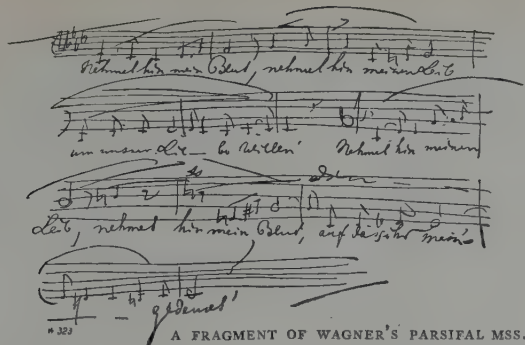 Nehmet hin mein Blut, nehmet hin meinen Leib
um unsrer Lie - be Willen!
Nehmet hin meinen
Leib, nehmet hin mein Blut, auf dass ihr mein'
gedenket!
N 323
A FRAGMENT OF WAGNER'S PARSIFAL MSS.